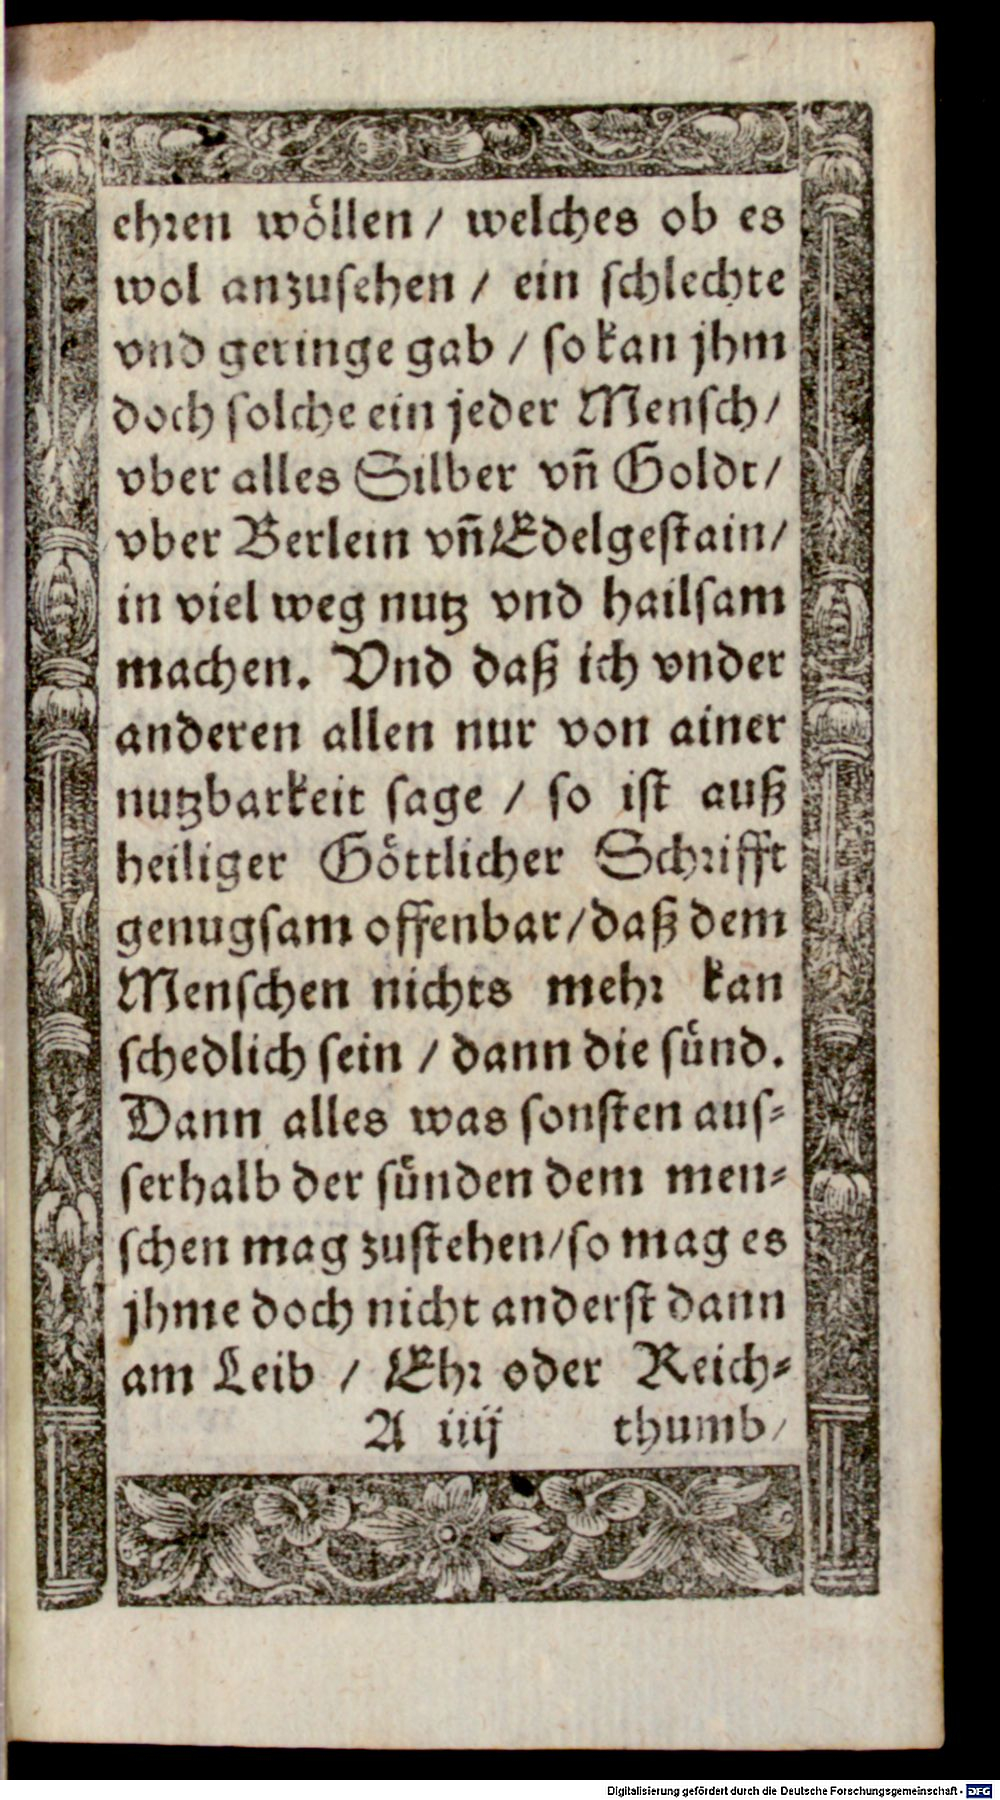 ehren woͤllen / welches ob es
wol anzuſehen / ein ſchlechte
vnd geringe gab / ſo kan jhm
doch ſolche ein jeder Menſch /
vber alles Silber vñ Goldt /
vber Berlein vñ Edelgeſtain /
in viel weg nutz vnd hailſam
machen. Vnd daß ich vnder
anderen allen nur von ainer
nutzbarkeit ſage / ſo iſt auß
heiliger Goͤttlicher Schrifft
genugſam offenbar / daß dem
Menſchen nichts mehr kan
ſchedlich ſein / dann die ſuͤnd.
Dann alles was ſonſten auſ⸗
ſerhalb der ſuͤnden dem men⸗
ſchen mag zuſtehen / ſo mag es
jhme doch nicht anderſt dann
am Leib / Ehr oder Reich⸗
A iiij thumb /
Digitalisierung gefördert durch die Deutsche Forschungsgemeinschaft - DFG